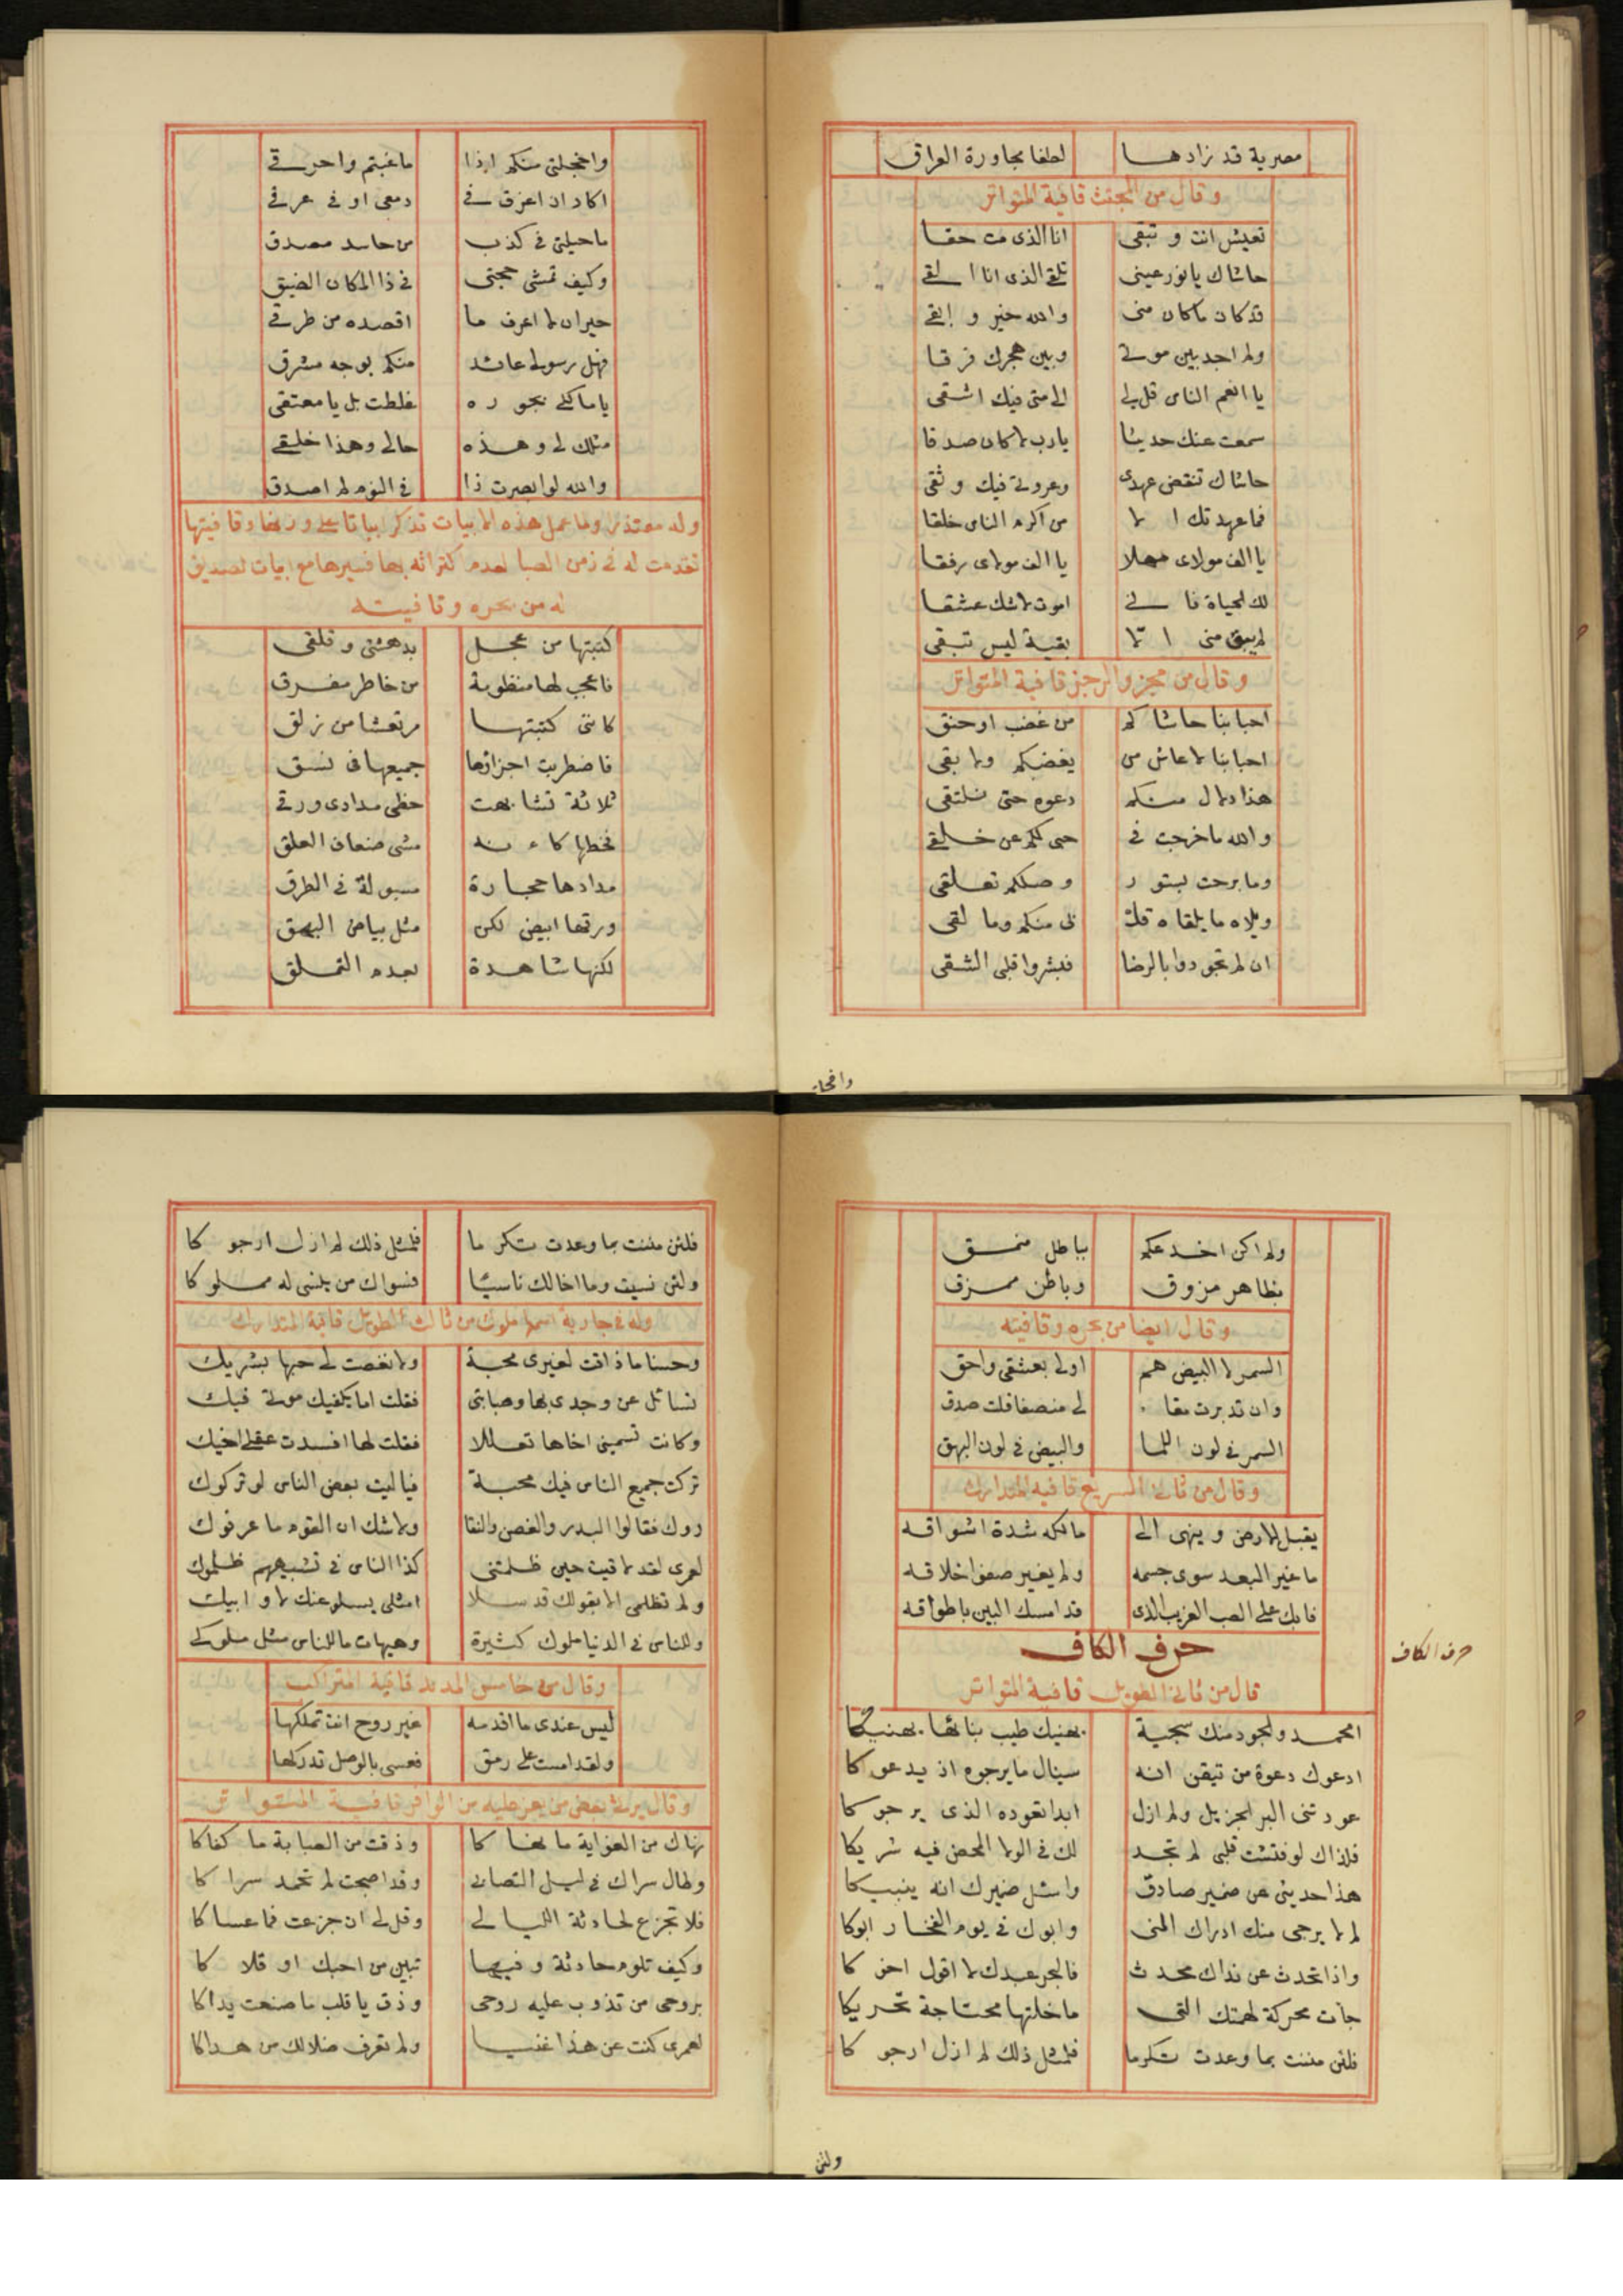 مصرية قد زادها لطفا مجاورة العراق
وقال من المجتث قافية المتواتر
تعيش انت وتبقى انا الذى مت حقا
حاشاك يا نور عينى تلقى الذى انا القى
قد كان ما كان منى والله خير وابقى
ولم اجد بين موتى وبين هجرك فرقا
يا انعم الناس قل لى الى متى فيك اشقى
سمعت عنك حديثا يا رب لا كان صدقا
حاشاك تنقض عهدى وعروتى فيك وثقى
فما عهدتك الا من اكرم الناس خلقا
يا الف مولاى مهلا يا الف مولاى رفقا
لك الحياة فانى اموت لا شك عشقا
لم يبق منى الا بقية ليس تبقى
وقال من مجزو الرجز قافية المتواتر
احبابنا حاشاكم من غضب او حنق
احبابنا لا عاش من يغضبكم ولا بقى
هذا دلال منكم دعوه حتى نلتقى
والله ما خرجت فى حبى لكم عن خلقى
وما برحت بستور وصلكم تعلقى
ويلاه ما يلقاه قلبى منكم وما لقى
ان لم تجودوا بالرضا فبشروا قلبى الشقى
واخجلتى منكم اذا ما غبتم واحرقى
اكاد ان اغرق فى دمعى او فى عرقى
ما حيلتى فى كذب من حاسد مصدق
وكيف تمشى حجتى فى ذا المكان الضيق
حيران لا اعرف ما اقصده من طرقى
فهل رسولى عائد منكم بوجه مشرق
يا مالكى بجوره غلطت بل يا معتقى
مثلك لى وهذه حالى وهذا خلقى
والله لو ابصرت ذا فى النوم لم اصدق
وله معتذرا ولما عمل هذه الابيات تذكر ابياتا على وزنها وقافيتها
تقدمت له فى زمن الصبا لعدم اكتراثه بها فسيرها مع ابيات لصديق
له من بحره وقافيته
كتبتها من عجل بدهشتى وقلقى
فاعجب لها منظومة من خاطر مفرق
كاننى كتبتها مرتعشا من زلق
فاضطربت اجزاؤها جميعها فى نسق
ثلاثة تشابهت حظى مدادى ورقى
فخطها كانه مشى ضعاف العلق
مدادها حجارة مسبولة فى الطرق
ورقها ابيض لكن مثل بياض البهق
لكنها شاهدة بعدم التملق
وافحات
ولم اكن اخدعكم بباطل منمق
بظاهر مزوق وباطن ممزق
وقال ايضا من بحره وقافيته
السمر لا البيض هم اولى بعشقى واحق
وان تدبرت مقا لى منصفا قلت صدق
السمر فى لون اللما والبيض فى لون البهق
وقال من ثانى السريع قافية المتدارك
يقبل الارض وينهى الى مالكه شدة اشواقه
ما غير البعد سوى جسمه ولم يغير صفو اخلاقه
فابك على الصب الغريب الذى قد امسك البين باطواقه
حرف الكاف
حرف الكاف
قال من ثانى الطويل قافية المتواتر
امحمد والجود منك سجية يهنيك طيب ثنائها يهنيكا
ادعوك دعوة من تيقن انه سينال ما يرجوه اذ يدعوكا
عودتنى البر الجزيل ولم ازل ابدا تعوده الذى يرجوكا
فلذاك لو فتشت قلبى لم تجد لك فى الولا المحض فيه شريكا
هذا حديثى عن ضمير صادق واسئل ضميرك انه ينبيكا
لم لا يرجى منك ادراك المنى وابوك فى يوم الفخار ابوكا
واذا تحدث عن نداك محدث فالبحر عبدك لا اقول اخوكا
جأت محركة لهمتك التى ما خلتها محتاجة تحريكا
فلئن مننت بما وعدت تكرما فلمثل ذلك لم ازل ارجوكا
ولئن
فلئن مننت بما وعدت تكرما فلمثل ذلك لم ازل ارجوكا
ولئن نسيت وما اخالك ناسيا فسواك من ينسى له مملوكا
وله فى جارية اسمها ملوك من ثالث الطويل قافية المتدارك
وحسنا ما ذاقت لغيرى محبة ولا نغصت لى حبها بشريك
تسائل عن وجدى بها وصبابتى فقلت اما يكفيك موتى فيك
وكانت تسمينى اخاها تعللا فقلت لها افسدت عقل اخيك
تركت جميع الناس فيك محبة فيا ليت بعض الناس لو تركوك
روك فقالوا البدر والغصن والنقا ولا شك ان القوم ما عرفوك
لعمرى لقد لاقيت حين ظلمتنى كذا الناس فى تشبيههم ظلموك
ولم تظلمى الا بقولك قد سلا امثلى يسلو عنك لا وابيك
وللناس فى الدنيا ملوك كثيرة وهيهات ما للناس مثل ملوكى
وقال من خامس المديد قافية المتراكب
ليس عندى ما اقدمه غير روح انت تملكها
ولقد امست على رمق فعسى بالوصل تدركها
وقال يرثى بعض من يعز عليه من الوافر قافية المتواتر
نهاك من الغواية ما نهاكا وذقت من الصبابة ما كفاكا
وطال سراك فى ليل التصابى وقد اصبحت لم تحمد سراكا
فلا تجزع لحادثة الليالى وقل لى ان جزعت فما عساكا
وكيف تلوم حادثة وفيها تبين من احبك او قلاكا
بروحى من تذوب عليه روحى وذق يا قلب ما صنعت يداكا
لعمرى كنت عن هذا غنيا ولم تعرف ضلالك من هداكا